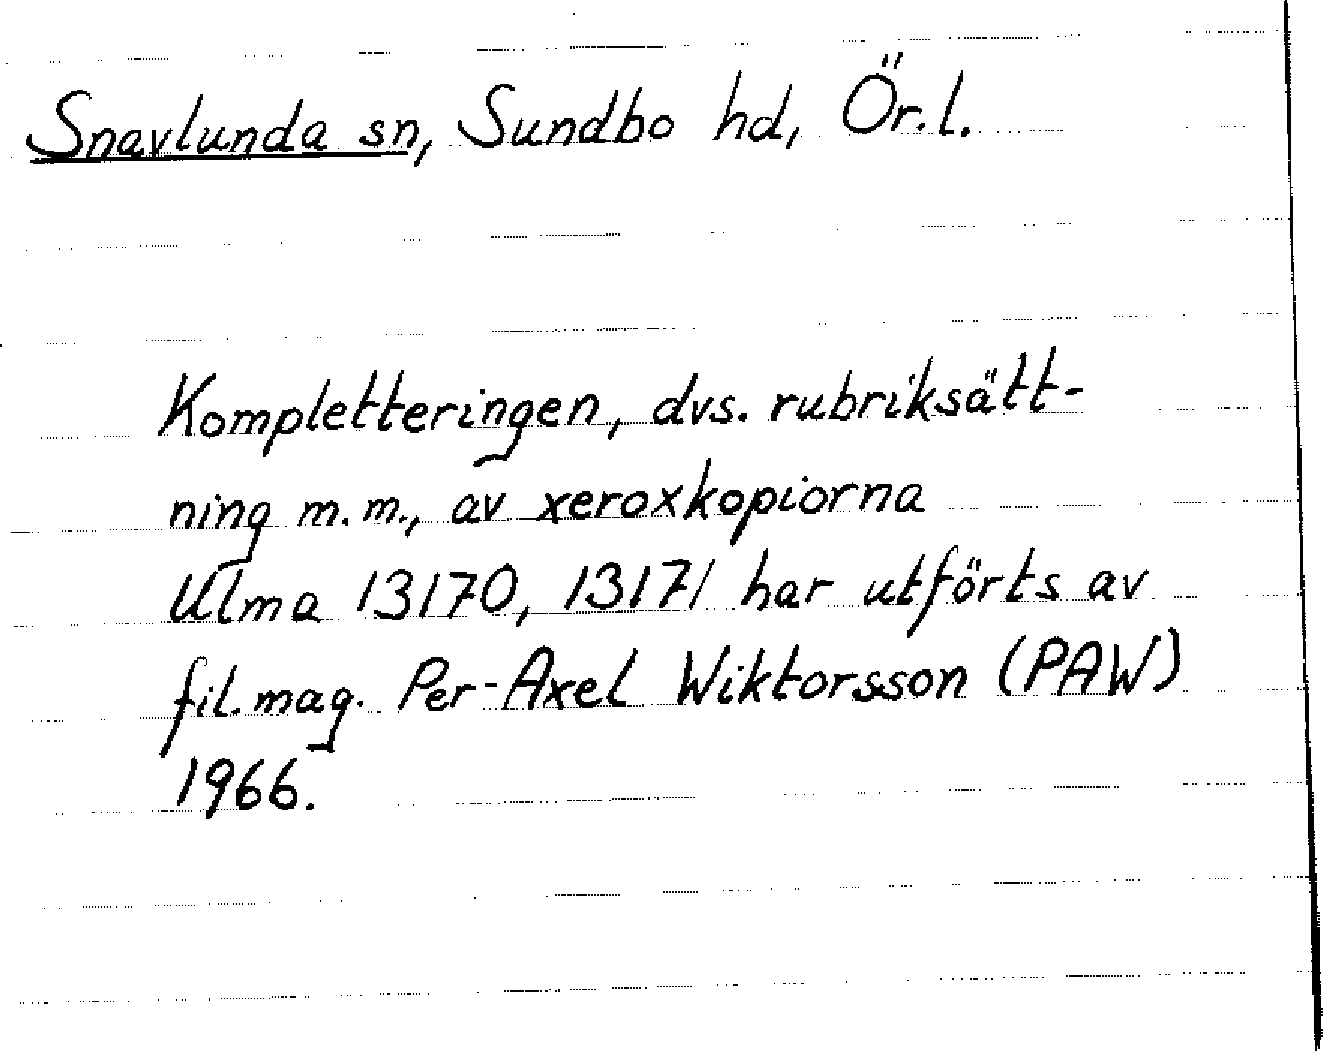 Snavlunda sn, Sundbo hd, Ör.l.
Kompletteringen, dvs. rubriksätt-
ning m.m., av xeroxkopiorna
Ulma 13170, 13171 har utförts av
fil.mag. Per-Axel Wiktorsson (PAW)
1966.